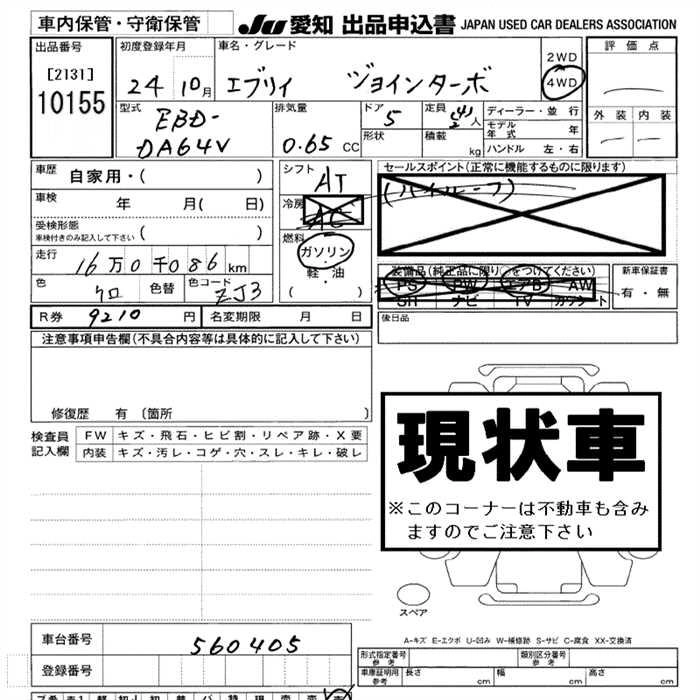 車内保管・守衛保管 JU 愛知 出品申込書 JAPAN USED CAR DEALERS ASSOCIATION
出品番号 初度登録年月 車名・グレード 2WD 評価点
[2131] 24 10月 エブリイ ジョインターボ 4WD
10155
型式 排気量 ドア 定員 ディーラー・並行 外装 内装
EBD- 5 人 モデル年式 年
DA64V 0.65 CC 形状 積載 kg ハンドル 左・右
車歴 自家用・( ) シフト AT セールスポイント(正常に機能するものに限ります)
車検 年 月( 日) 冷房 AC (ハイルーフ)
受検形態 ( )
車検付きのみ記入して下さい
燃料
ガソリン
軽・油
( )
走行 16万0千086km
装備品(純正品に限り○をつけてください) 新車保証書
PS PW エアB AW 有・無
SH ナビ TV カワシート
色 クロ 色替 色コード ZJ3
R券 9210 円 名変期限 月 日 後日品
注意事項申告欄(不具合内容等は具体的に記入して下さい)
修復歴 有 〔箇所
現状車
※このコーナーは不動車も含み
ますのでご注意下さい
検査員 FW キズ・飛石・ヒビ割・リペア跡・X要
記入欄 内装 キズ・汚レ・コゲ・穴・スレ・キレ・破レ
スペア
車台番号 560405
登録番号
A-キズ E-エクボ U-凹み W-補修跡 S-サビ C-腐食 XX-交換済
形式指定番号 参考 類別区分番号 参考
車庫証明用 参考 長さ cm 幅 cm 高さ cm